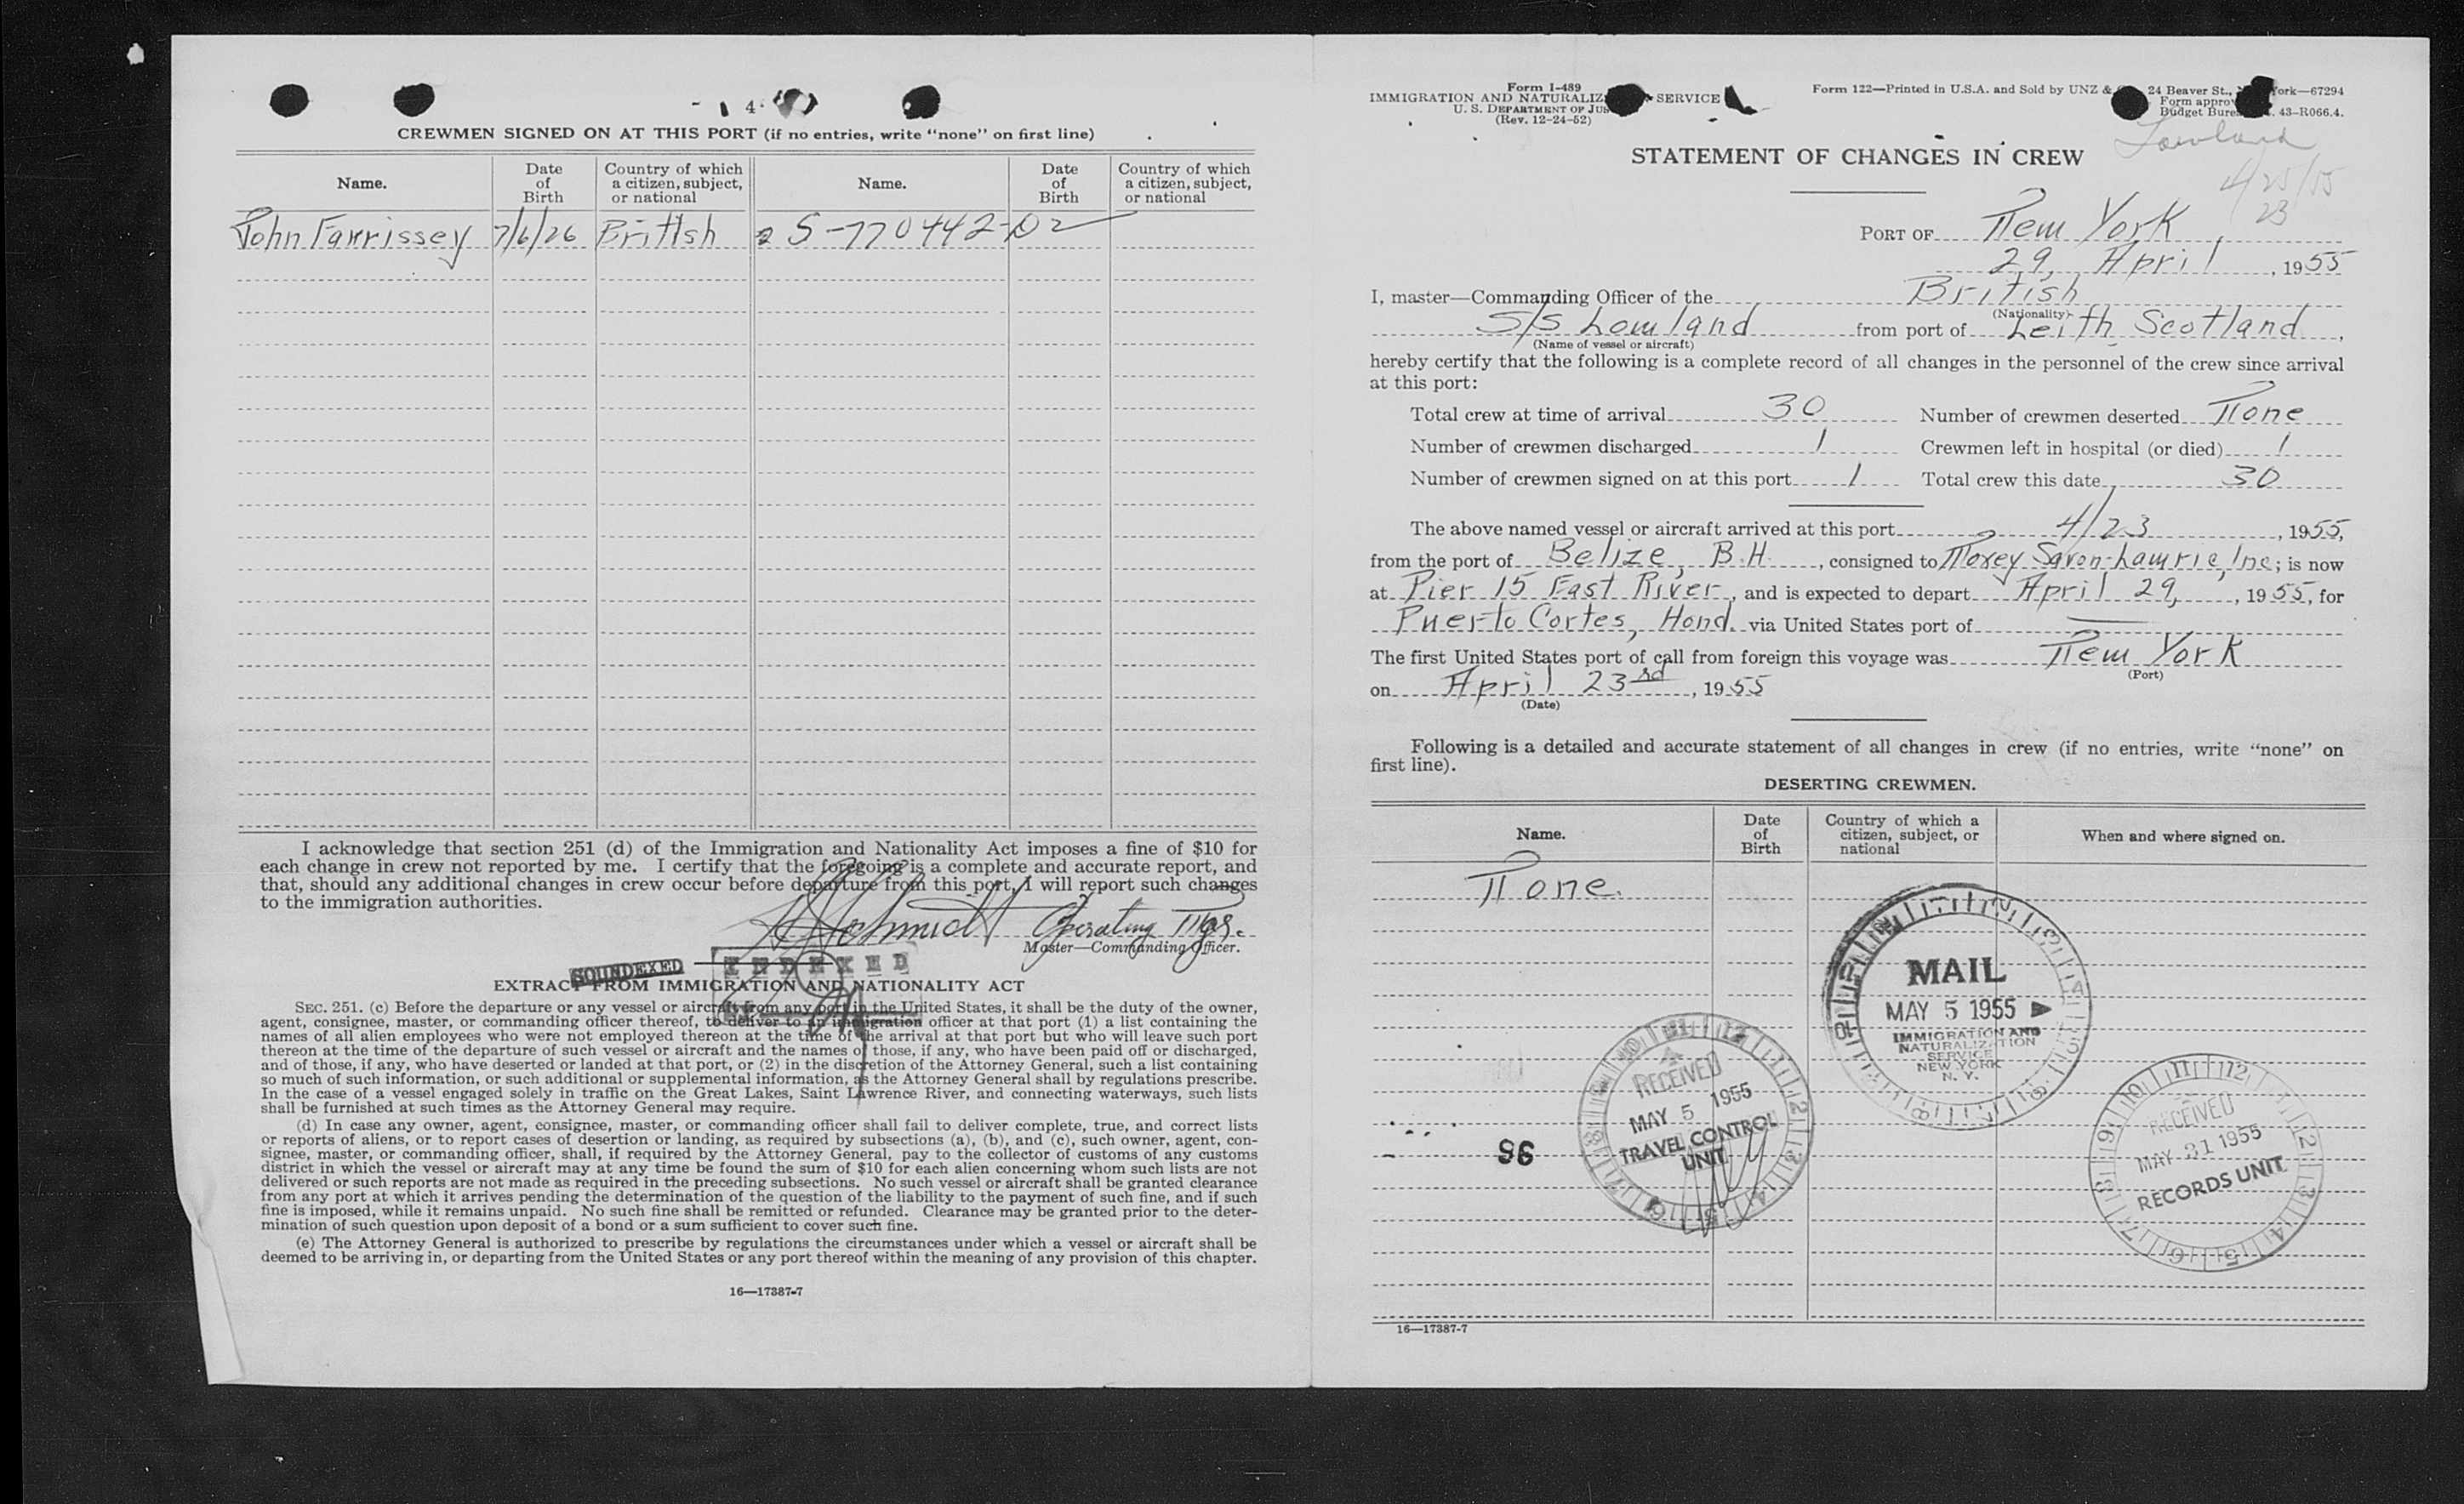 4
CREWMEN SIGNED ON AT THIS PORT (if no entries, write "none" on first line)
Name. Date of Birth Country of which a citizen, subject, or national Name. Date of Birth Country of which a citizen, subject, or national
John Farrissey 7/6/26 British S-770442-D2
I acknowledge that section 251 (d) of the Immigration and Nationality Act imposes a fine of $10 for
each change in crew not reported by me. I certify that the foregoing is a complete and accurate report, and
that, should any additional changes in crew occur before departure from this port, I will report such changes
to the immigration authorities.
Schmidt Operating Mgr.
Master—Commanding Officer.
SOUNDEXED
INDEXED
EXTRACT FROM IMMIGRATION AND NATIONALITY ACT
SEC. 251. (c) Before the departure or any vessel or aircraft from any port in the United States, it shall be the duty of the owner,
agent, consignee, master, or commanding officer thereof, to deliver to an immigration officer at that port (1) a list containing the
names of all alien employees who were not employed thereon at the time of the arrival at that port but who will leave such port
thereon at the time of the departure of such vessel or aircraft and the names of those, if any, who have been paid off or discharged,
and of those, if any, who have deserted or landed at that port, or (2) in the discretion of the Attorney General, such a list containing
so much of such information, or such additional or supplemental information, as the Attorney General shall by regulations prescribe.
In the case of a vessel engaged solely in traffic on the Great Lakes, Saint Lawrence River, and connecting waterways, such lists
shall be furnished at such times as the Attorney General may require.
(d) In case any owner, agent, consignee, master, or commanding officer shall fail to deliver complete, true, and correct lists
or reports of aliens, or to report cases of desertion or landing, as required by subsections (a), (b), and (c), such owner, agent, con-
signee, master, or commanding officer, shall, if required by the Attorney General, pay to the collector of customs of any customs
district in which the vessel or aircraft may at any time be found the sum of $10 for each alien concerning whom such lists are not
delivered or such reports are not made as required in the preceding subsections. No such vessel or aircraft shall be granted clearance
from any port at which it arrives pending the determination of the question of the liability to the payment of such fine, and if such
fine is imposed, while it remains unpaid. No such fine shall be remitted or refunded. Clearance may be granted prior to the deter-
mination of such question upon deposit of a bond or a sum sufficient to cover such fine.
(e) The Attorney General is authorized to prescribe by regulations the circumstances under which a vessel or aircraft shall be
deemed to be arriving in, or departing from the United States or any port thereof within the meaning of any provision of this chapter.
16—17387-7
Form I-489
IMMIGRATION AND NATURALIZ SERVICE
U. S. DEPARTMENT OF JUS
(Rev. 12-24-52)
Form 122—Printed in U.S.A. and Sold by UNZ & 24 Beaver St., ork—67294
Form approv
Budget Bure 43-R066.4.
Lowland
4/25/55
23
STATEMENT OF CHANGES IN CREW
PORT OF New York
29, April, 1955
I, master—Commanding Officer of the British
(Nationality)
S/S Lowland from port of Leith Scotland,
(Name of vessel or aircraft)
hereby certify that the following is a complete record of all changes in the personnel of the crew since arrival
at this port:
Total crew at time of arrival 30 Number of crewmen deserted None
Number of crewmen discharged 1 Crewmen left in hospital (or died) 1
Number of crewmen signed on at this port 1 Total crew this date 30
The above named vessel or aircraft arrived at this port 4/23, 1955,
from the port of Belize, B.H., consigned to Moxey Savon-Lawrie, Inc; is now
at Pier 15 East River, and is expected to depart April 29, 1955, for
Puerto Cortes, Hond. via United States port of —
The first United States port of call from foreign this voyage was New York
(Port)
on April 23rd, 1955
(Date)
Following is a detailed and accurate statement of all changes in crew (if no entries, write "none" on
first line).
DESERTING CREWMEN.
Name. Date of Birth Country of which a citizen, subject, or national When and where signed on.
None.
MAIL
MAY 5 1955
IMMIGRATION AND
NATURALIZATION
SERVICE
NEW YORK
N. Y.
RECEIVED
MAY 5 1955
TRAVEL CONTROL
UNIT
96
RECEIVED
MAY 31 1955
RECORDS UNIT
16—17387-7